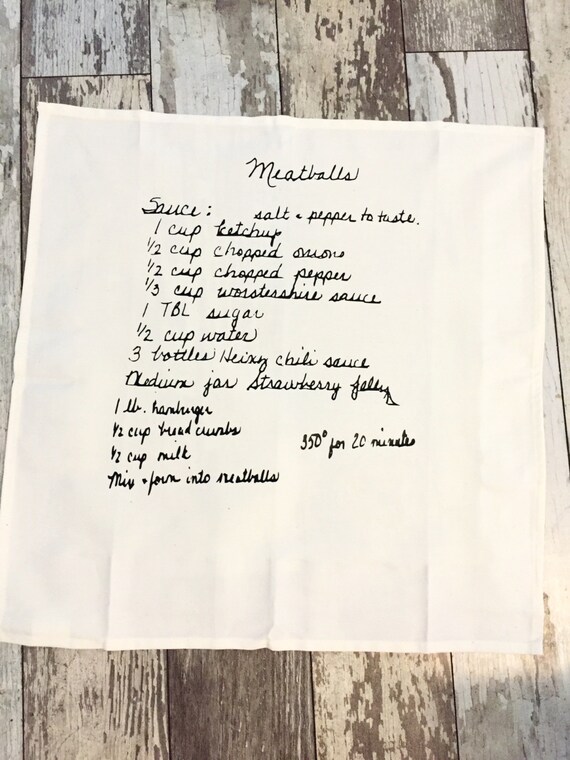 Meatballs
Sauce: salt & pepper to taste.
1 cup ketchup
1/2 cup chopped onions
1/2 cup chopped pepper
1/3 cup worstershire sauce
1 TBL sugar
1/2 cup water
3 bottles Heinz chili sauce
Medium jar strawberry jelly
1 lb. hamburger
1/2 cup bread crumbs
350° for 20 minutes
1/2 cup milk
Mix & form into meatballs